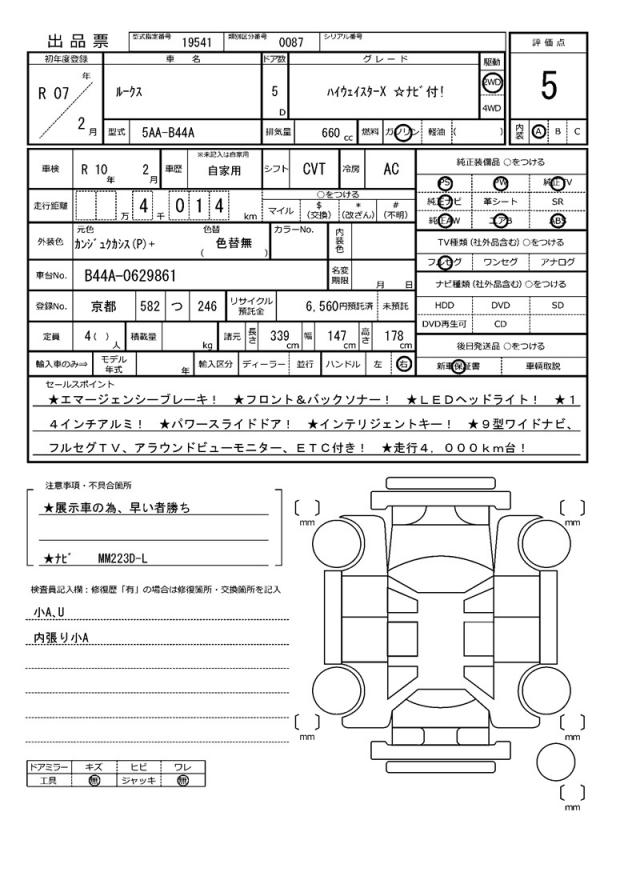 出品票 型式指定番号 19541 類別区分番号 0087 シリアル番号
評価点
5
内装 A B C
初年度登録 車名 ドア数 グレード 駆動
R 07 年 2 月 ルークス 5 D ハイウェイスターX ☆ナビ付! 2WD 4WD
型式 5AA-B44A 排気量 660 cc 燃料 ガソリン 軽油 ( )
車検 R 10 年 2 月 車歴 ※未記入は自家用 自家用 シフト CVT 冷房 AC
走行距離 万 4 千 0 1 4 km
○をつける
マイル $ (交換) * (改ざん) # (不明)
外装色 元色 カンジュクカシス(P)+ 色替 ( 色替無 ) カラーNo. 内装色
車台No. B44A-0629861 名変期限 月 日
登録No. 京都 582 つ 246 リサイクル預託金 6,560円預託済 未預託
定員 4( ) 人 積載量 kg 諸元 長さ 339 cm 幅 147 cm 高さ 178 cm
輸入車のみ⇒ モデル年式 年 輸入区分 ディーラー 並行 ハンドル 左 右
純正装備品 ○をつける
PS PW 純正TV
純正ナビ 革シート SR
純正AW エアB ABS
TV種類 (社外品含む) ○をつける
フルセグ ワンセグ アナログ
ナビ種類 (社外品含む) ○をつける
HDD DVD SD
DVD再生可 CD
後日発送品 ○をつける
新車保証書 車輌取説
セールスポイント
★エマージェンシーブレーキ! ★フロント&バックソナー! ★LEDヘッドライト! ★1
4インチアルミ! ★パワースライドドア! ★インテリジェントキー! ★9型ワイドナビ、
フルセグTV、アラウンドビューモニター、ETC付き! ★走行4,000km台!
注意事項・不具合箇所
★展示車の為、早い者勝ち
★ナビ MM223D-L
検査員記入欄:修復歴「有」の場合は修復箇所・交換箇所を記入
小A、U
内張り小A
ドアミラー キズ ヒビ ワレ
工具 無 ジャッキ 無
mm mm
mm mm
mm